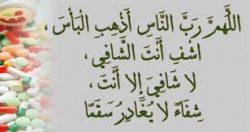 اللَّهُمَّ رَبَّ النَّاسِ أَذْهِبِ الْبَأسَ،
اشْفِ أَنْتَ الشَّافِي،
لا شَافِيَ إِلا أَنْتَ،
شِفَاءً لا يُغَادِرُ سَقَمًا